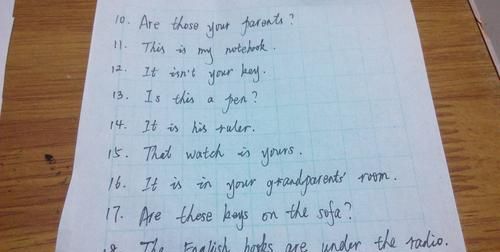 10. Are those your parents?
11. This is my notebook.
12. It isn't your key.
13. Is this a pen?
14. It is his ruler.
15. That watch is yours.
16. It is in your grandparents' room.
17. Are those keys on the sofa?
18. The English books are under the radio.